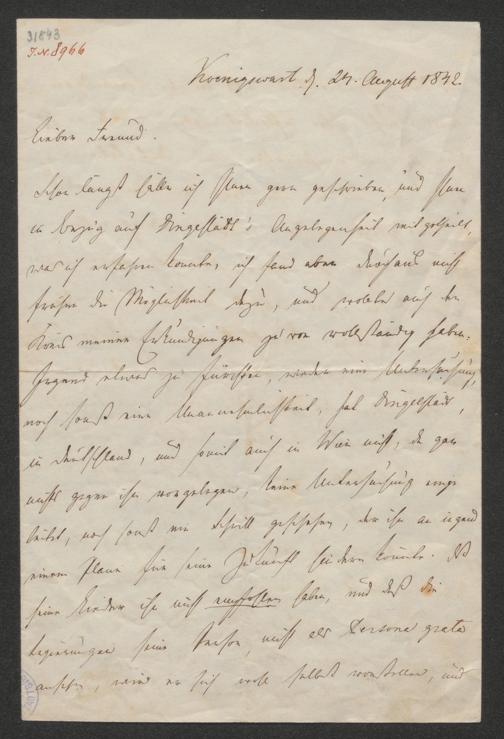 31843
I.N. 8966
Koenigswart d. 27. August 1842.
Lieber Freund.
Schon längst hätte ich Ihnen gern geschrieben, und Ihnen
in bezug auf Dingelstädt's Angelegenheit mitgetheilt,
was ich erfahren konnte, ich fand aber durchaus nicht
früher die Möglichkeit dazu, und wollte auch den
Kreis meiner Erkundigungen zuvor vollständig haben.
Irgend etwas zu fürchten, weder eine Untersuchung,
noch sonst eine Unannehmlichkeit, hat Dingelstädt,
in Deutschland, und somit auch in Wien nicht, da gar
nichts gegen ihn vorgelegen, keine Untersuchung einge
leitet, noch sonst ein Schritt geschehen, der ihn an irgend
einem Plane für seine Zukunft hindern könnte. Daß
seine Lieder ihn nicht empfohlen haben, und daß die
Regierungen seine Person, nicht als Persona grata
ansehen, wird er sich wohl selbst vorstellen, und